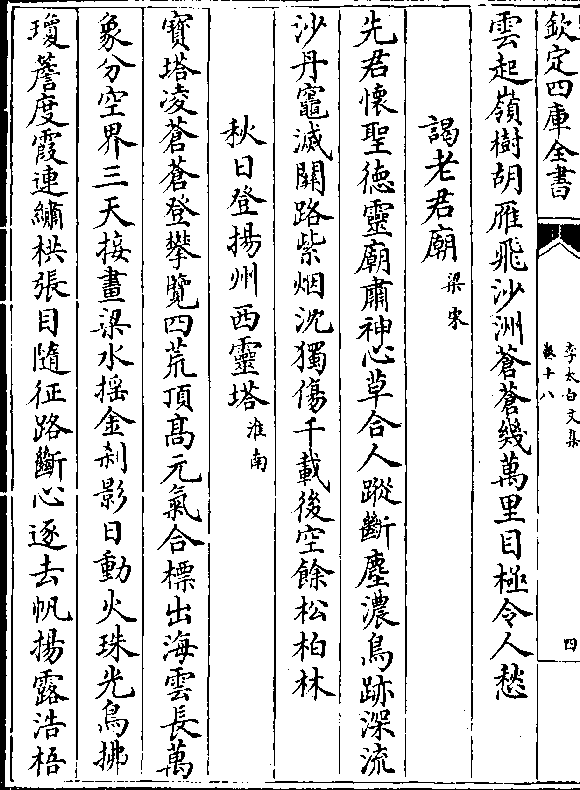 欽定四庫全書
李太白文集
卷十八
四
雲起嶺樹胡雁飛沙洲蒼蒼幾萬里目極令人愁
謁老君廟梁宋
先君懷聖德靈廟肅神心草合人蹤斷塵濃鳥跡深流
沙丹竈滅關路紫烟沈獨傷千載後空餘松柏林
秋日登揚州西靈塔淮南
寶塔凌蒼蒼登攀覽四荒頂髙元氣合標出海雲長萬
象分空界三天接畫梁水揺金刹影日動火珠光鳥拂
瓊簷度霞連繡栱張目隨征路斷心逐去帆揚露浩梧